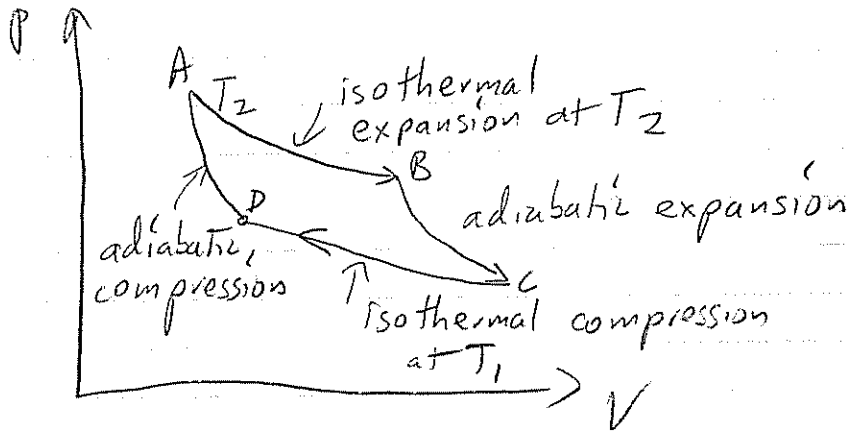 P
A
T2
isothermal
expansion at T2
B
D
adiabatic expansion
adiabatic,
compression
C
isothermal compression
at T1
V